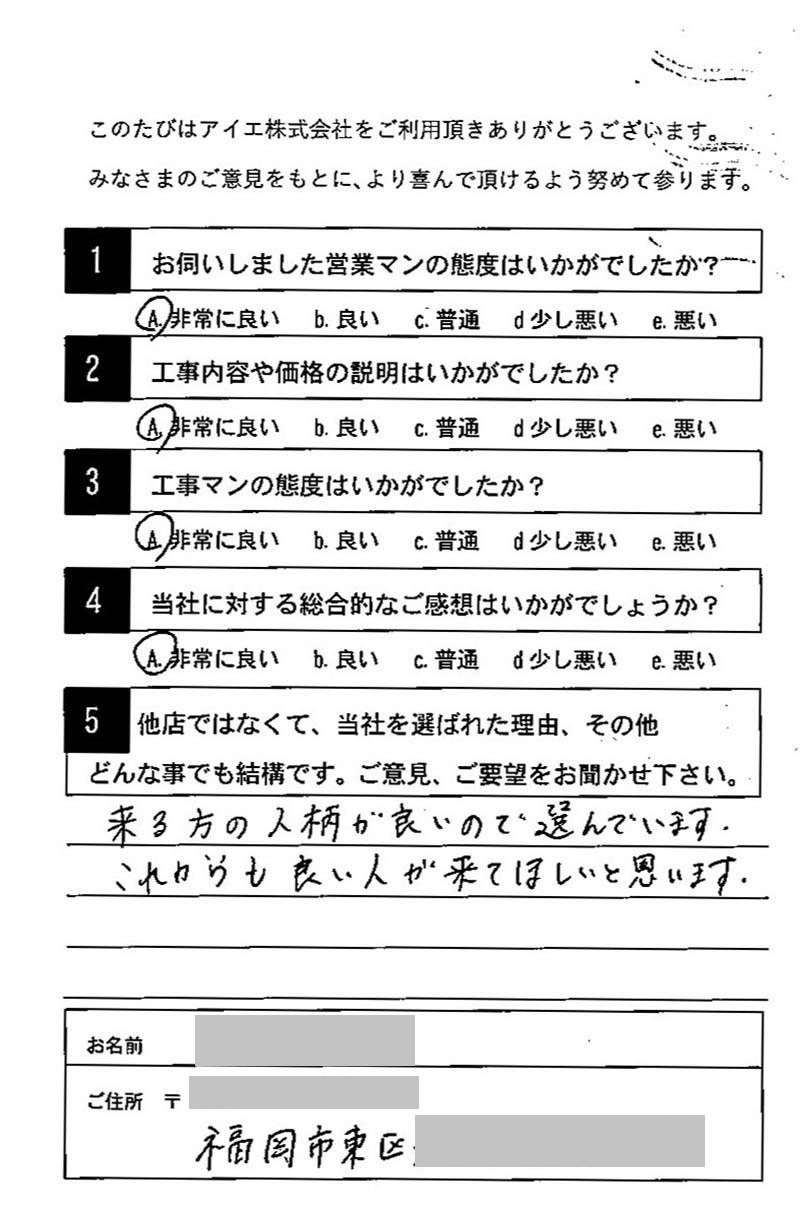 このたびはアイエ株式会社をご利用頂きありがとうございます。
みなさまのご意見をもとに、より喜んで頂けるよう努めて参ります。
1 お伺いしました営業マンの態度はいかがでしたか？
A. 非常に良い b. 良い c. 普通 d 少し悪い e. 悪い
2 工事内容や価格の説明はいかがでしたか？
A. 非常に良い b. 良い c. 普通 d 少し悪い e. 悪い
3 工事マンの態度はいかがでしたか？
A. 非常に良い b. 良い c. 普通 d 少し悪い e. 悪い
4 当社に対する総合的なご感想はいかがでしょうか？
A. 非常に良い b. 良い c. 普通 d 少し悪い e. 悪い
5 他店ではなくて、当社を選ばれた理由、その他
どんな事でも結構です。ご意見、ご要望をお聞かせ下さい。
来る方の人柄が良いので選んでいます.
これからも良い人が来てほしいと思います.
お名前
ご住所 〒
福岡市東区